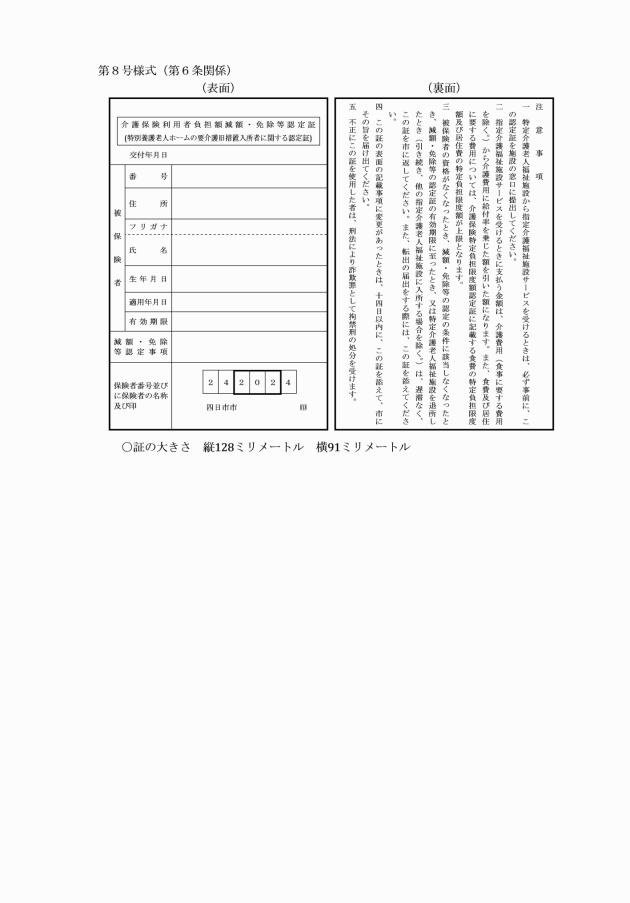 第８号様式（第６条関係）
（表面）
介護保険利用者負担額減額・免除等認定証
(特別養護老人ホームの要介護旧措置入所者に関する認定証)
交付年月日
被保険者
番号
住所
フリガナ
氏名
生年月日
適用年月日
有効期限
減額・免除
等認定事項
保険者番号並び
に保険者の名称
及び印
2 4 2 0 2 4
四日市市
印
（裏面）
注意事項
一　特定介護老人福祉施設から指定介護福祉施設サービスを受けるときは、必ず事前に、こ
の認定証を施設の窓口に提出してください。
二　指定介護福祉施設サービスを受けるときに支払う金額は、介護費用（食事に要する費用
を除く。）から介護費用に給付率を乗じた額を引いた額になります。また、食費及び居住
に要する費用については、介護保険特定負担限度額認定証に記載する食費の特定負担限度
額及び居住費の特定負担限度額が上限となります。
三　被保険者の資格がなくなったとき、減額・免除等の認定の条件に該当しなくなったと
き、減額・免除等の認定証の有効期限に至ったとき、又は特定介護老人福祉施設を退所し
たとき（引き続き、他の指定介護老人福祉施設に入所する場合を除く。）は、遅滞なく、
この証を市に返してください。また、転出の届出をする際には、この証を添えてくださ
い。
四　この証の表面の記載事項に変更があったときは、十四日以内に、この証を添えて、市に
その旨を届け出てください。
五　不正にこの証を使用した者は、刑法により詐欺罪として拘禁刑の処分を受けます。
〇証の大きさ　縦128ミリメートル　横91ミリメートル